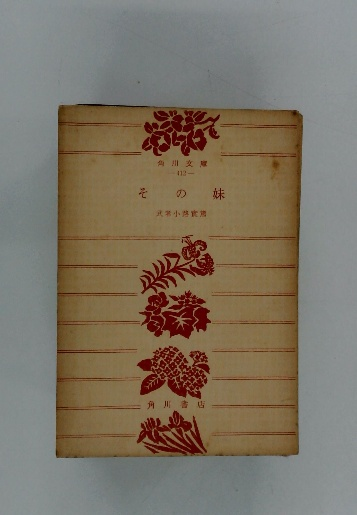 角川文庫
—412—
その妹
武者小路實篤
角川書店